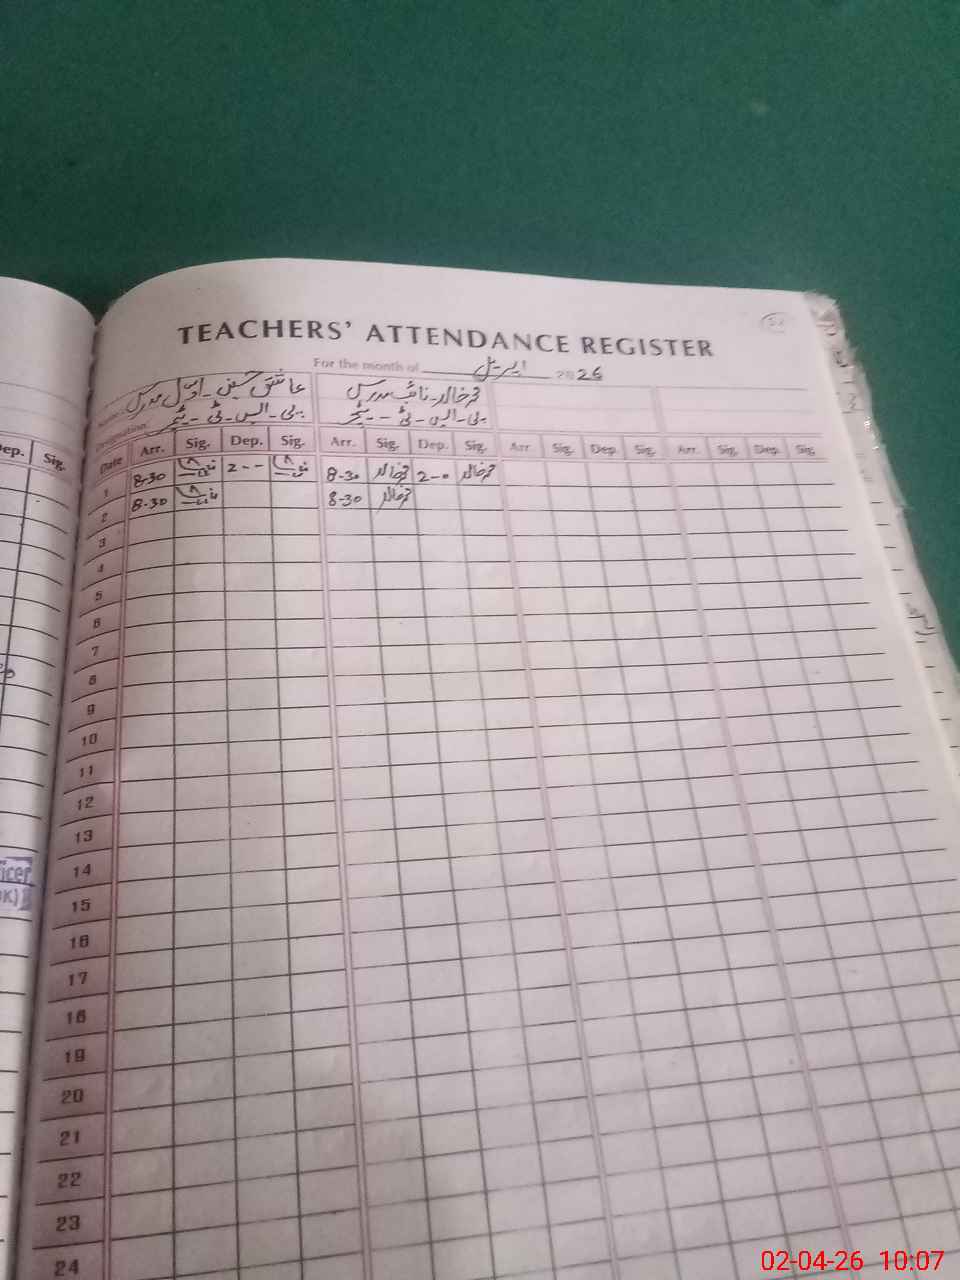 TEACHERS' ATTENDANCE REGISTER
For the month of اپریل 2026
عاشق حسین - اول مدرس
بی - ایس - ٹی - ٹیچر
محمد خالد - نائب مدرس
بی - ایس - ٹی - ٹیچر
Designation:
Dep. Sig.
Date Arr. Sig. Dep. Sig. Arr. Sig. Dep. Sig. Arr. Sig. Dep. Sig. Arr. Sig. Dep. Sig.
1 8-30 2-- 8-30 محمد خالد 2-0 محمد خالد
2 8-30 8-30 محمد خالد
3
4
5
6
7
8
9
10
11
12
13
14
15
16
17
18
19
20
21
22
23
24
icer
OK)
02-04-26 10:07